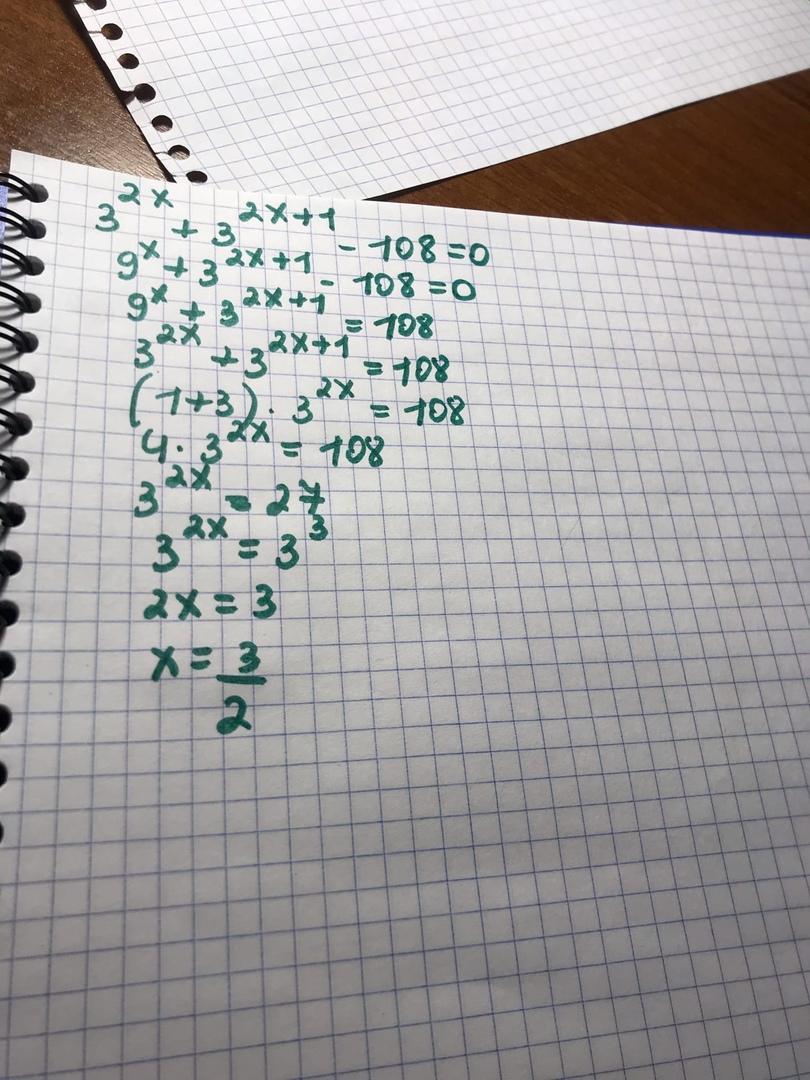 3^{2x} + 3^{2x+1} - 108 = 0
9^x + 3^{2x+1} - 108 = 0
9^x + 3^{2x+1} = 108
3^{2x} + 3^{2x+1} = 108
(1+3) · 3^{2x} = 108
4 · 3^{2x} = 108
3^{2x} = 27
3^{2x} = 3^3
2x = 3
x = \frac{3}{2}